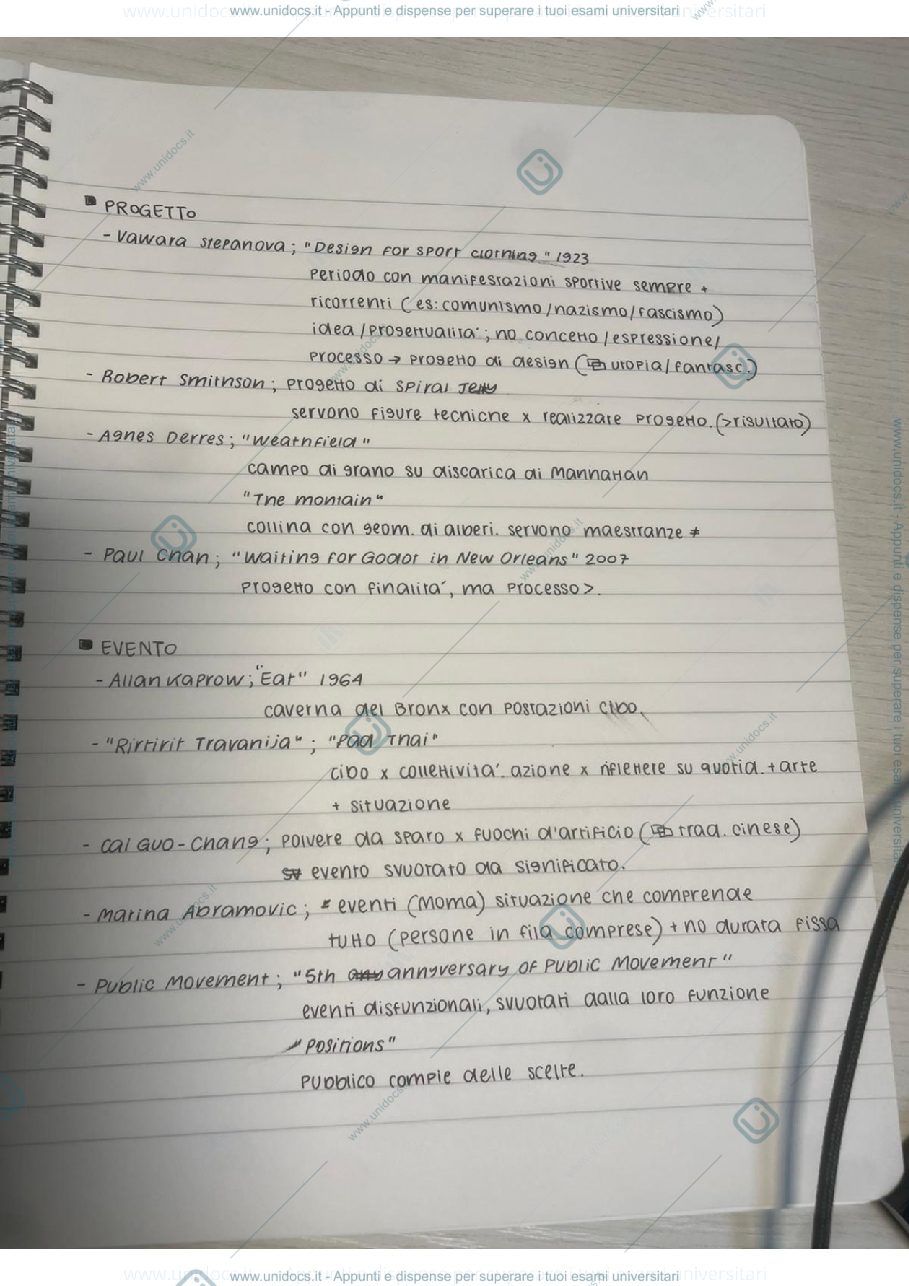 www.unidocs.it - Appunti e dispense per superare i tuoi esami universitari
PROGETTO
- Vawara Stepanova; "Design for sport clothing" 1923
Periodo con manifestazioni sportive sempre +
ricorrenti (es: comunismo/nazismo/fascismo)
idea/progettualità; no concetto/espressione/
processo → progetto di design ( utopia/fantasc.)
- Robert Smithson; progetto di Spiral Jetty
servono figure tecniche x realizzare progetto. (>risultato)
- Agnes Derres; "Weathfield"
campo di grano su discarica di Manhattan
"The montain"
collina con geom. di alberi. servono maestranze ≠
- Paul Chan; "Waiting for Godot in New Orleans" 2007
progetto con finalità, ma processo >.
EVENTO
- Allan Kaprow; "Eat" 1964
caverna del Bronx con postazioni cibo.
- "Rirtirit Travanija"; "Pad Thai"
cibo x collettività. azione x riflettere su quotid. + arte
+ situazione
- Cai Guo-Chang; polvere da sparo x fuochi d'artificio ( trad. cinese)
evento svuotato da significato.
- Marina Abramovic; ≠ eventi (Moma) situazione che comprende
tutto (persone in fila comprese) + no durata fissa
- Public Movement; "5th annyversary of Public Movement"
eventi disfunzionali, svuotati dalla loro funzione
"Positions"
Pubblico compie delle scelte.
www.unidocs.it - Appunti e dispense per superare i tuoi esami universitari